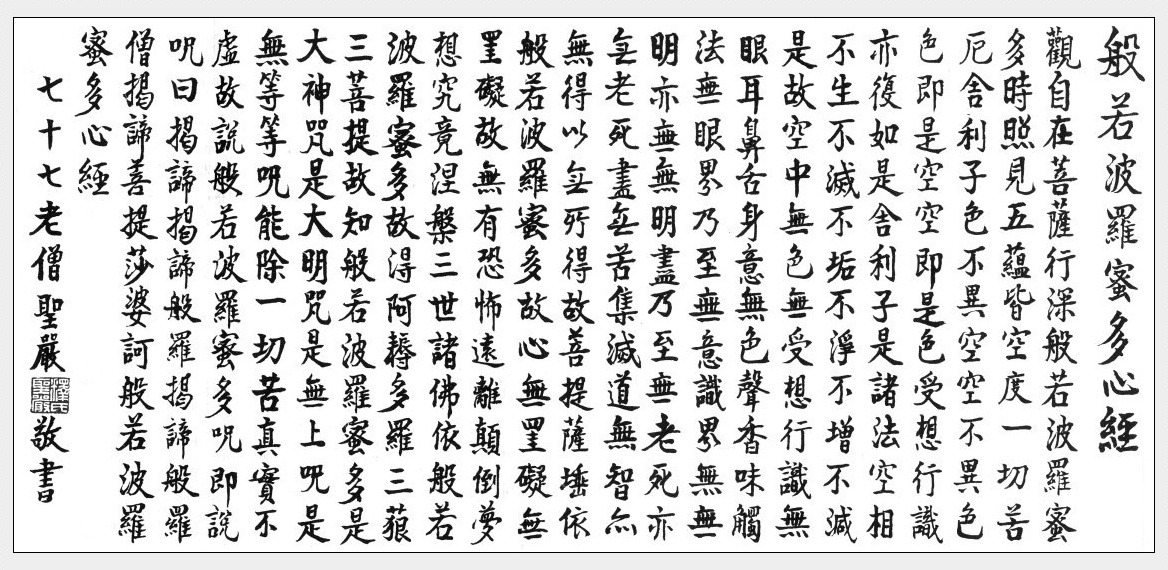 般若波羅蜜多心經
觀自在菩薩行深般若波羅蜜
多時照見五蘊皆空度一切苦
厄舍利子色不異空空不異色
色即是空空即是色受想行識
亦復如是舍利子是諸法空相
不生不滅不垢不淨不增不減
是故空中無色無受想行識無
眼耳鼻舌身意無色聲香味觸
法無眼界乃至無意識界無無
明亦無無明盡乃至無老死亦
无老死盡无苦集滅道無智亦
無得以无所得故菩提薩埵依
般若波羅蜜多故心無罣礙無
罣礙故無有恐怖遠離顛倒夢
想究竟涅槃三世諸佛依般若
波羅蜜多故得阿耨多羅三藐
三菩提故知般若波羅蜜多是
大神咒是大明咒是無上呪是
無等等呪能除一切苦真實不
虛故說般若波羅蜜多呪即說
呪曰揭諦揭諦般羅揭諦般羅
僧揭諦菩提莎婆訶般若波羅
蜜多心經
七十七老僧聖嚴敬書